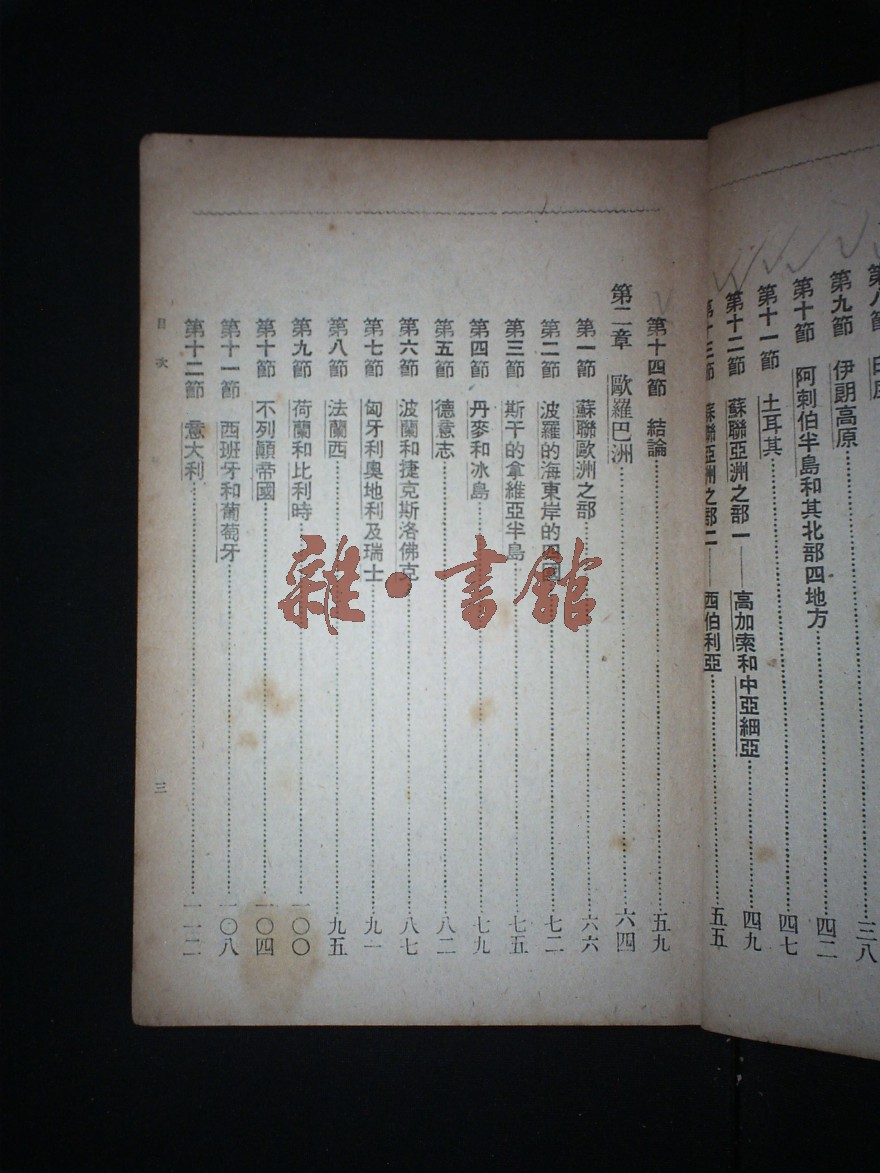 第九節 伊朗高原 三八
第十節 阿剌伯半島和其北部四地方 四二
第十一節 土耳其 四七
第十二節 蘇聯亞洲之部一——高加索和中亞細亞 四九
第十三節 蘇聯亞洲之部二——西伯利亞 五五
第十四節 結論 五九
第二章 歐羅巴洲 六四
第一節 蘇聯歐洲之部 六六
第二節 波羅的海東岸的四國 七二
第三節 斯干的拿維亞半島 七五
第四節 丹麥和冰島 七九
第五節 德意志 八二
第六節 波蘭和捷克斯洛佛克 八七
第七節 匈牙利奧地利及瑞士 九一
第八節 法蘭西 九五
第九節 荷蘭和比利時 一〇〇
第十節 不列顛帝國 一〇四
第十一節 西班牙和葡萄牙 一〇八
第十二節 意大利 一一二
目次
三
雜·書館